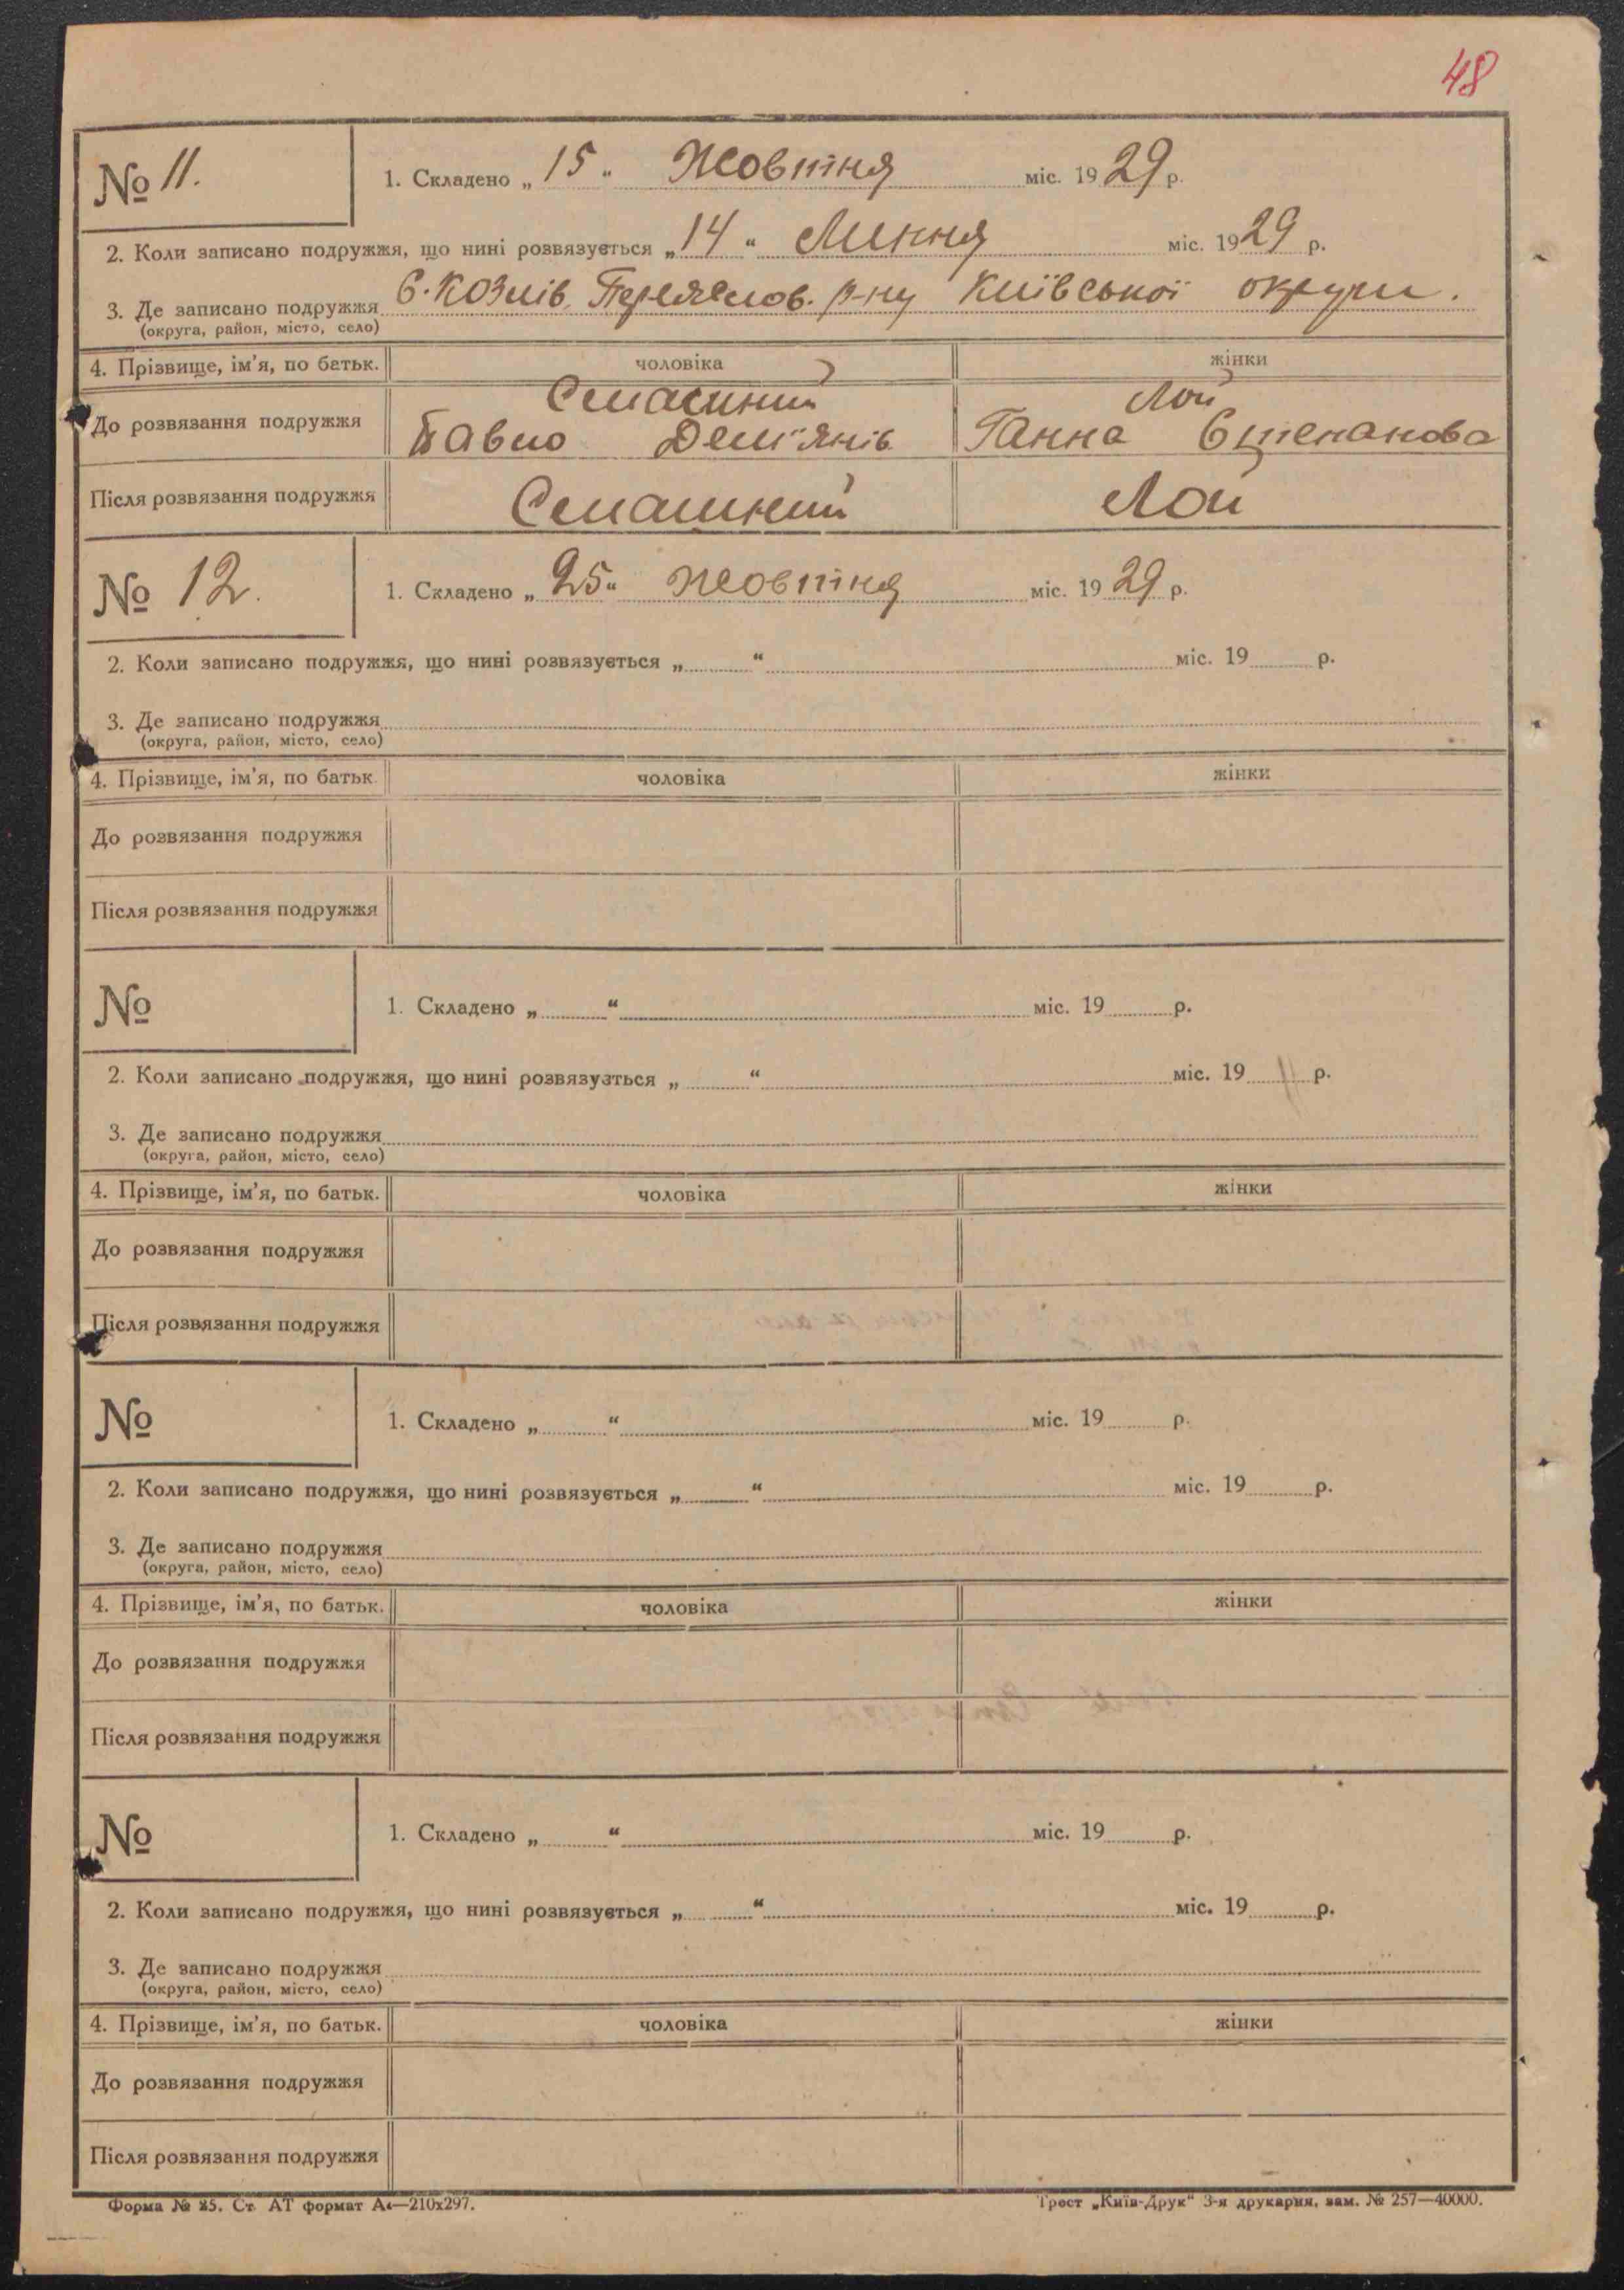 48
№ 11.
1. Складено „15“ Жовтня міс. 1929 р.
2. Коли записано подружжя, що нині розвязується „14“ Липня міс. 1929 р.
3. Де записано подружжя С. Козлів, Переяслов. р-ну Київської округи.
(округа, район, місто, село)
4. Прізвище, ім'я, по батьк. чоловіка жінки
Лой
До розвязання подружжя Павло Дем'янів Ганна Степанова
Після розвязання подружжя Лой
№ 12.
1. Складено „25“ Жовтня міс. 1929 р.
2. Коли записано подружжя, що нині розвязується „ “ міс. 19 р.
3. Де записано подружжя
(округа, район, місто, село)
4. Прізвище, ім'я, по батьк. чоловіка жінки
До розвязання подружжя
Після розвязання подружжя
№
1. Складено „ “ міс. 19 р.
2. Коли записано подружжя, що нині розвязується „ “ міс. 19 р.
3. Де записано подружжя
(округа, район, місто, село)
4. Прізвище, ім'я, по батьк. чоловіка жінки
До розвязання подружжя
Після розвязання подружжя
№
1. Складено „ “ міс. 19 р.
2. Коли записано подружжя, що нині розвязується „ “ міс. 19 р.
3. Де записано подружжя
(округа, район, місто, село)
4. Прізвище, ім'я, по батьк. чоловіка жінки
До розвязання подружжя
Після розвязання подружжя
№
1. Складено „ “ міс. 19 р.
2. Коли записано подружжя, що нині розвязується „ “ міс. 19 р.
3. Де записано подружжя
(округа, район, місто, село)
4. Прізвище, ім'я, по батьк. чоловіка жінки
До розвязання подружжя
Після розвязання подружжя
Форма № 25. Ст. АТ формат А4—210х297. Трест „Київ-Друк“ 3-я друкарня, зам. № 257—40000.